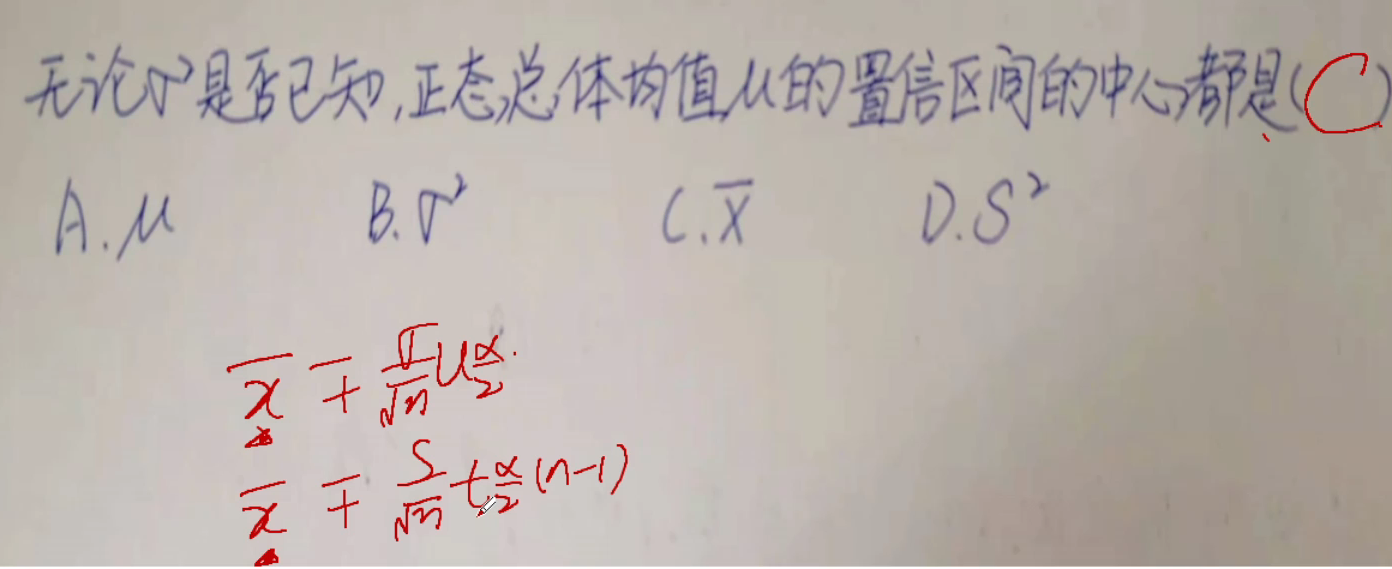 无论σ²是否已知,正态总体均值μ的置信区间的中心都是(C)
A.μ B.σ² C.X̅ D.S²
x̅ ∓ σ/√n u α/2
x̅ ∓ S/√n t α/2 (n-1)